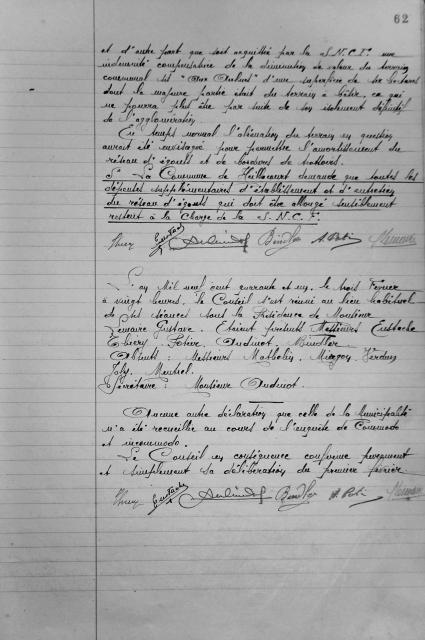 62
et d'autre part que soit acquittée par la S.N.C.F. une
indemnité compensatrice de la diminution de valeur du terrain
communal sis "Aux Aulnes" d'une superficie de six hectares
dont la majeure partie était du terrain à bâtir, ce qui
ne pourra plus être par suite de son isolement définitif
de l'agglomération.
En temps normal l'aliénation du terrain en question
aurait été envisagée pour permettre l'amortissement du
réseau d'égouts et de bordures de trottoirs.
La Commune de Heillecourt demande que toutes les
dépenses supplémentaires d'établissement et d'entretien
du réseau d'égouts qui doit être allongé sensiblement
restent à la Charge de la S.N.C.F.
Thiery Eustache Audinot Bindler
L'an Mil neuf cent quarante et un, le trois Février
à vingt heures, le Conseil s'est réuni au lieu habituel
de ses séances sous la Présidence de Monsieur
Lemaire Gustave. Etaient présents Messieurs Eustache
Thiery, Audinot, Bindler
Absents: Messieurs Mathelin,
Joly,
Secrétaire: Monsieur Audinot.
Aucune autre déclaration que celle de la Municipalité
n'a été recueillie au cours de l'enquête de Commodo
et incommodo.
Le Conseil en conséquence confirme purement
et simplement sa délibération du premier février.
Thiery Eustache Audinot Bindler